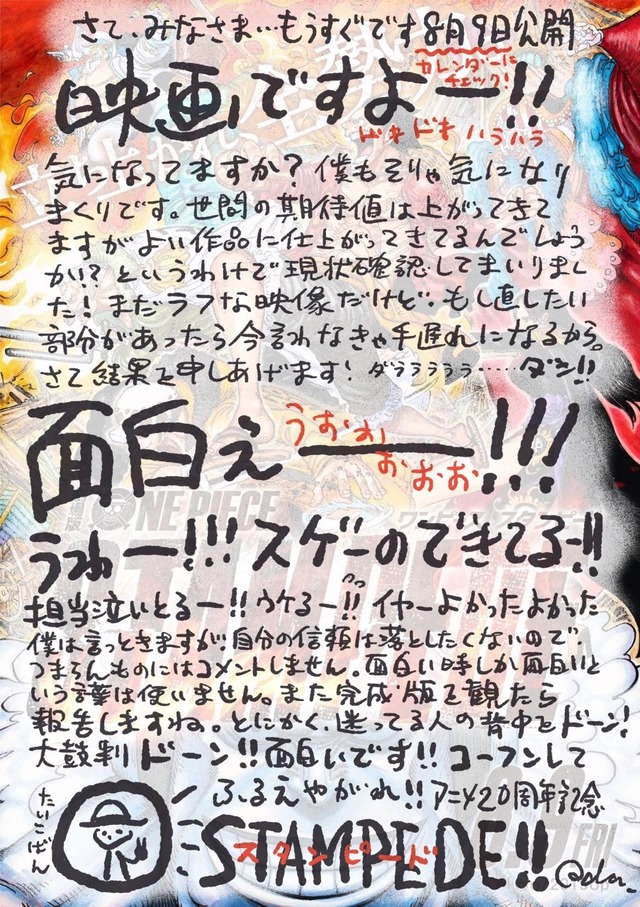 さて、みなさま…もうすぐです8月9日公開
カレンダーに
チェック!
映画ですよー!!
ドキドキハラハラ
気になってますか?僕もそりゃ気になり
まくりです。世間の期待値は上がってきて
ますがよい作品に仕上がってきてるんでしょう
かい?というわけで現状確認してまいりまし
た!まだラフな映像だけど、もし直したい
部分があったら今言わなきゃ手遅れになるから。
さて結果を申しあげます!ダララララララ……ダン!!
面白ぇ――!!!
うおぉぉ
おおお
うわー!!!スゲーのできてるー!!
担当泣いとるー!!ウケるー!!イヤーよかったよかった
僕は言っときますが、自分の信頼は落としたくないので、
つまらんものにはコメントしません。面白い時しか面白いと
いう言葉は使いません。また完成版を観たら
報告しますね。とにかく、迷ってる人の背中をドーン!
太鼓判ドーン!!面白いです!!コーフンして
ふるえやがれ!!アニメ20周年記念
たいこばん
STAMPEDE!!
スタンピード
Oda
ONE PIECE
FRI